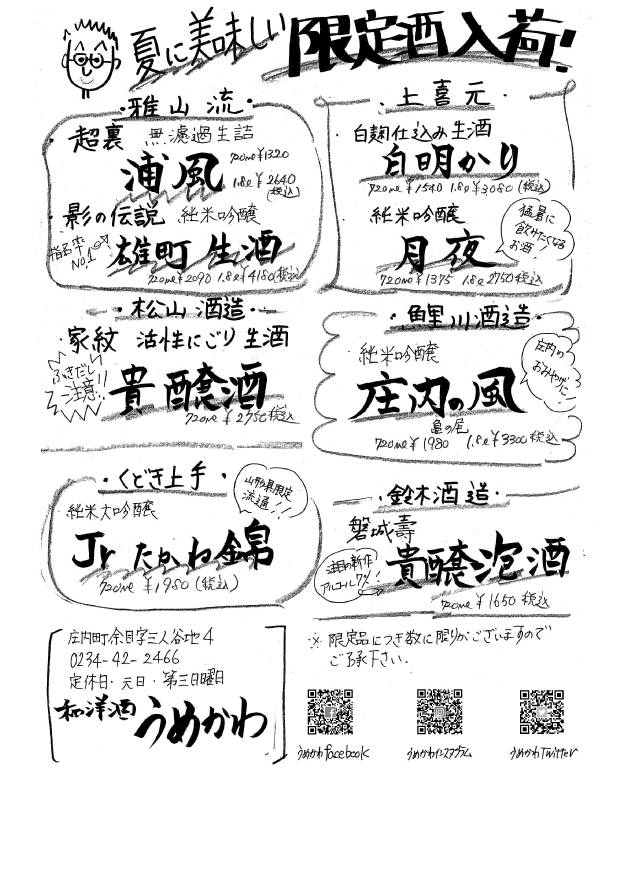 夏に美味しい 限定酒入荷!
・雅山流・
・超裏 無濾過生詰
浦風
720ml ¥1320
1.8ℓ ¥2640
(税込)
・影の伝説 純米吟醸
指名率
No.1
雄町 生酒
720ml ¥2090 1.8ℓ ¥4180(税込)
・上喜元・
・白麹仕込み生酒
白明かり
720ml ¥1540 1.8ℓ ¥3080(税込)
・純米吟醸
月夜
猛暑に
飲みたくなる
お酒!
720ml ¥1375 1.8ℓ 2750税込
・松山酒造・
家紋 活性にごり生酒
ふきだし
ご注意!!
貴醸酒
720ml ¥2750税込
・鯉川酒造・
純米吟醸
庄内の
おみやげに
庄内の風
亀の尾
720ml ¥1980 1.8ℓ ¥3300税込
・くどき上手・
純米大吟醸
山形県限定
流通!!
Jr たかね錦
720ml ¥1980(税込)
・鈴木酒造・
磐城壽
注目の新作
アルコール7%!
貴醸泡酒
720ml ¥1650税込
庄内町余目字三人谷地4
0234-42-2466
定休日・元日・第三日曜日
和洋酒 うめかわ
※限定品につき数に限りがございますので
ご了承下さい.
うめかわfacebook
うめかわインスタグラム
うめかわTwitter